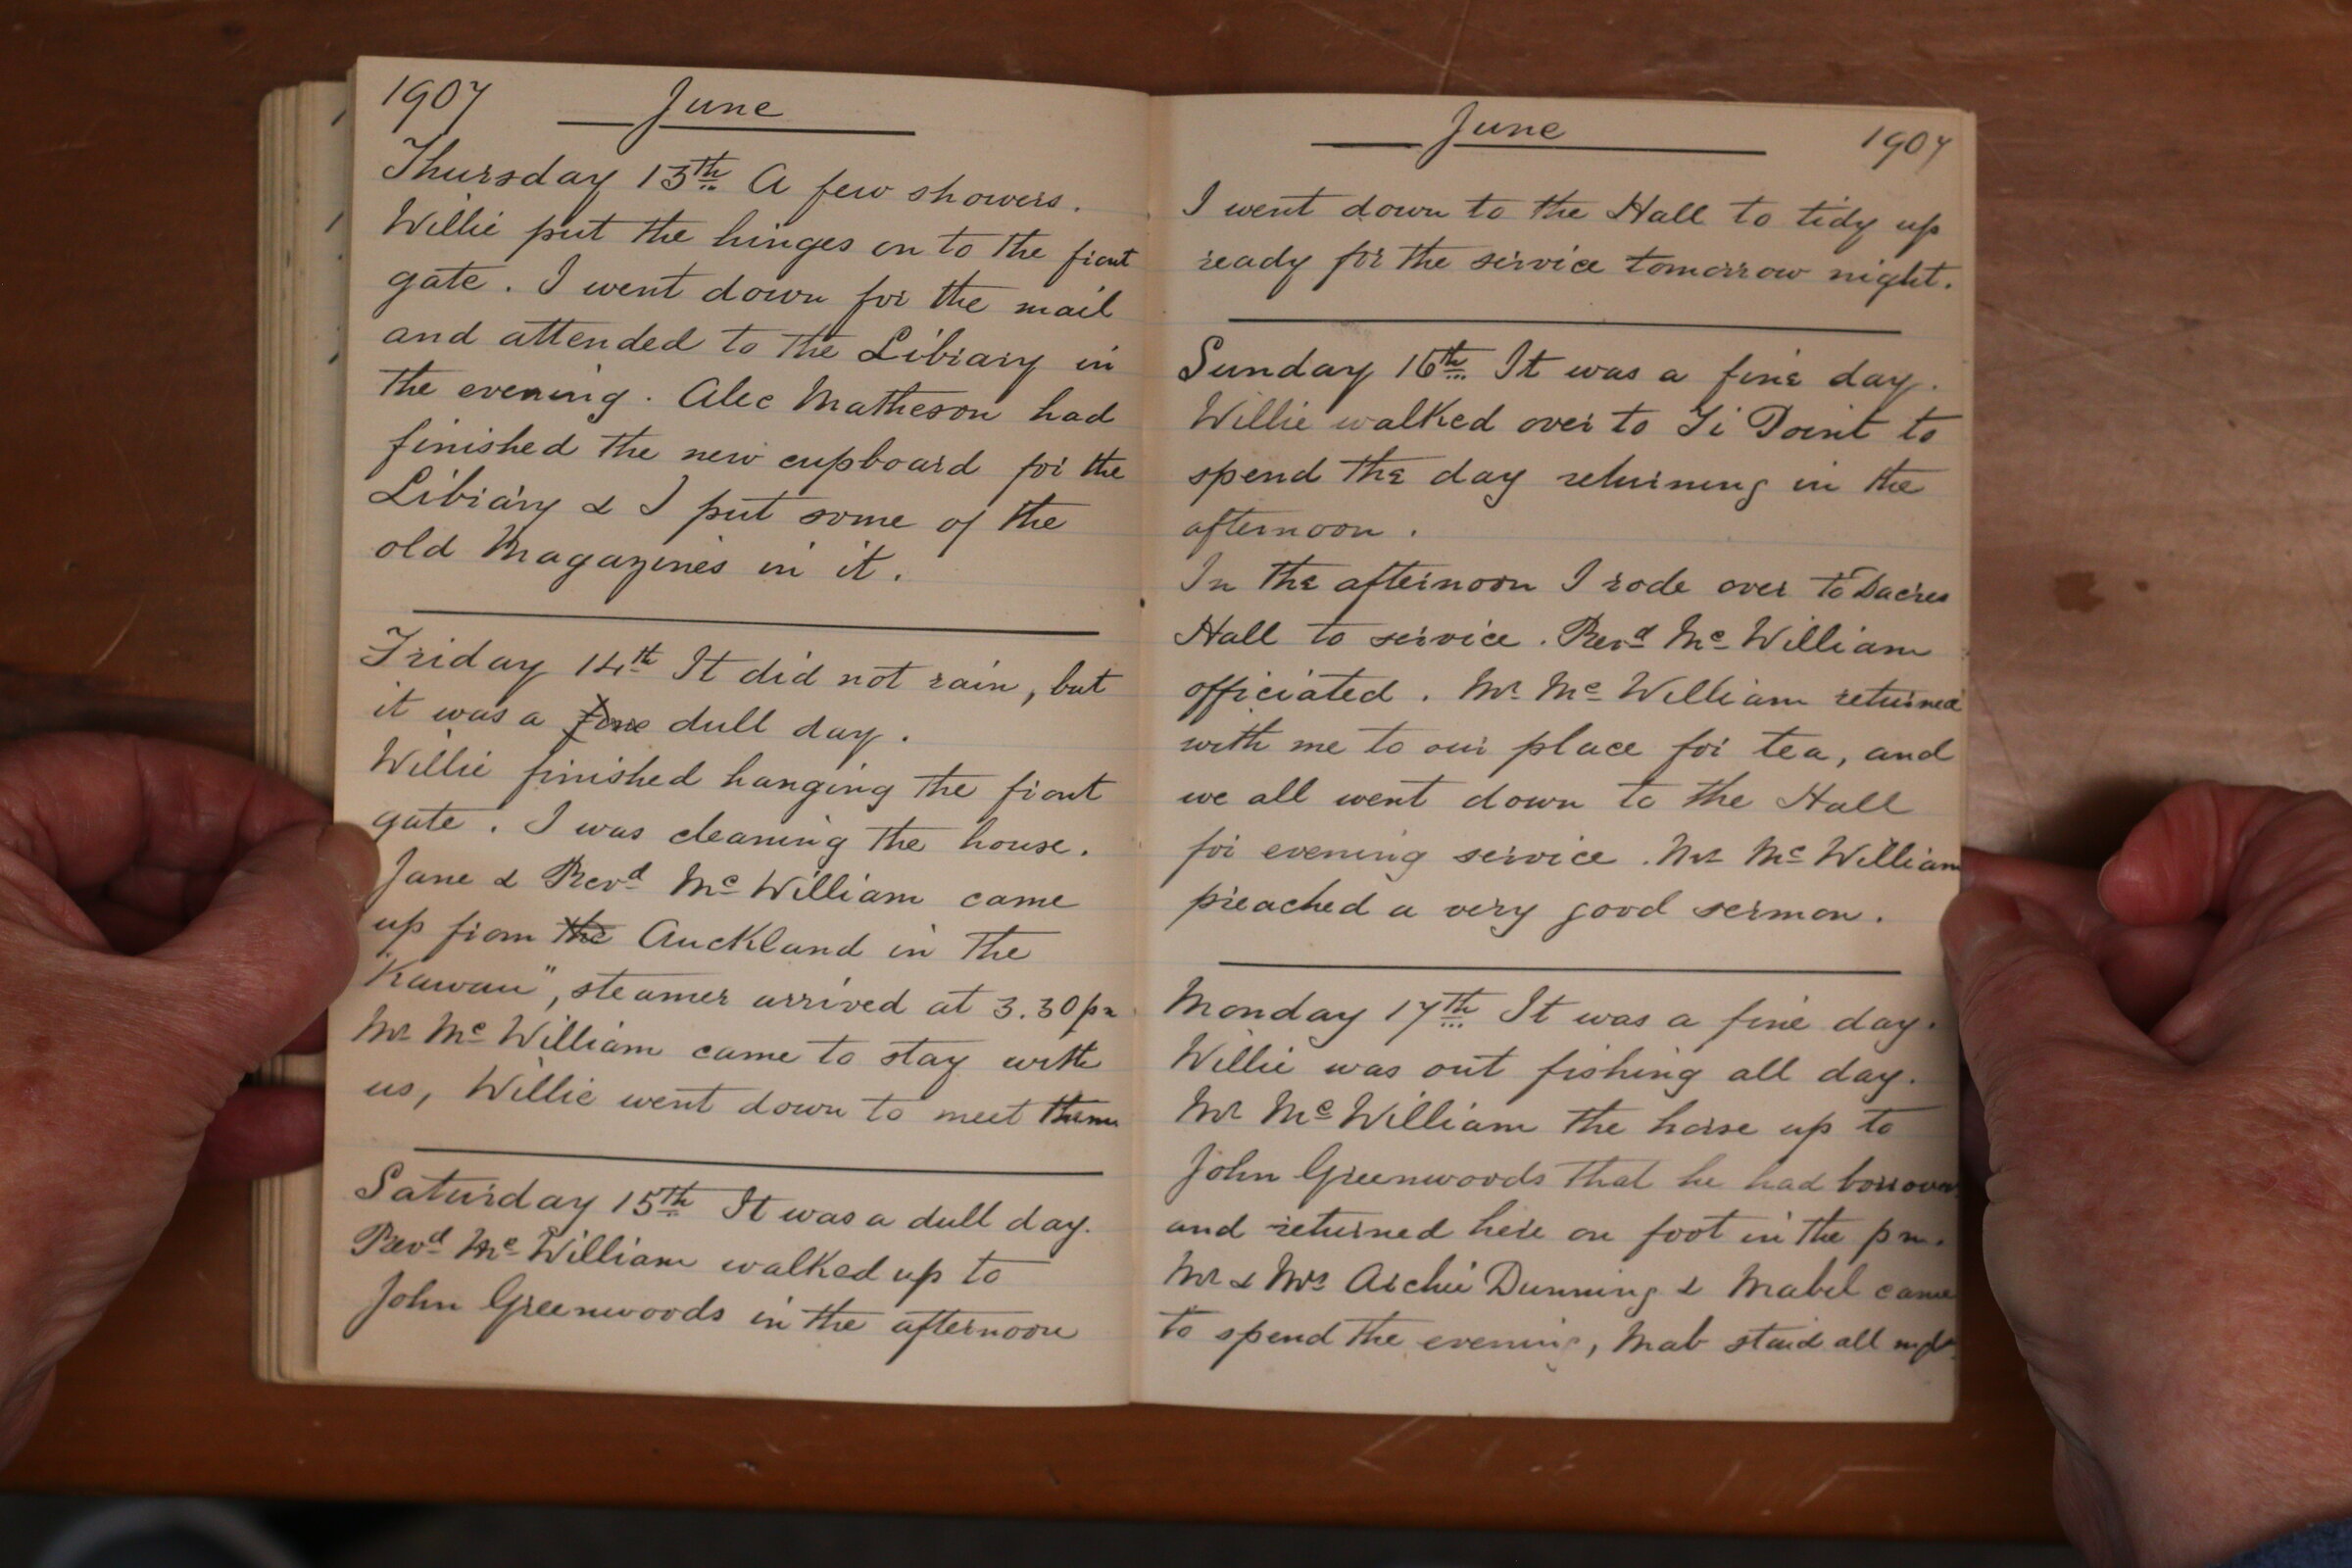 1907 June
Thursday 13th A few showers.
Willie put the hinges on to the front
gate. I went down for the mail
and attended to the Library in
the evening. Alec Matheson had
finished the new cupboard for the
Library & I put some of the
old Magazines in it.
Friday 14th It did not rain, but
it was a fine dull day.
Willie finished hanging the front
gate. I was cleaning the house.
Jane & Revd McWilliam came
up from the Auckland in the
"Kawau", steamer arrived at 3.30 pm
Mr McWilliam came to stay with
us, Willie went down to meet them
Saturday 15th It was a dull day.
Revd McWilliam walked up to
John Greenwoods in the afternoon
June 1907
I went down to the Hall to tidy up
ready for the service tomorrow night.
Sunday 16th It was a fine day.
Willie walked over to Ti Point to
spend the day returning in the
afternoon.
In the afternoon I rode over to Dacres
Hall to service. Revd McWilliam
officiated. Mr McWilliam returned
with me to our place for tea, and
we all went down to the Hall
for evening service. Mr McWilliam
preached a very good sermon.
Monday 17th It was a fine day.
Willie was out fishing all day.
Mr McWilliam the horse up to
John Greenwoods that he had borrowed
and returned here on foot in the pm.
Mr & Mrs Archie Dunning & Mabel came
to spend the evening, Mab staid all night